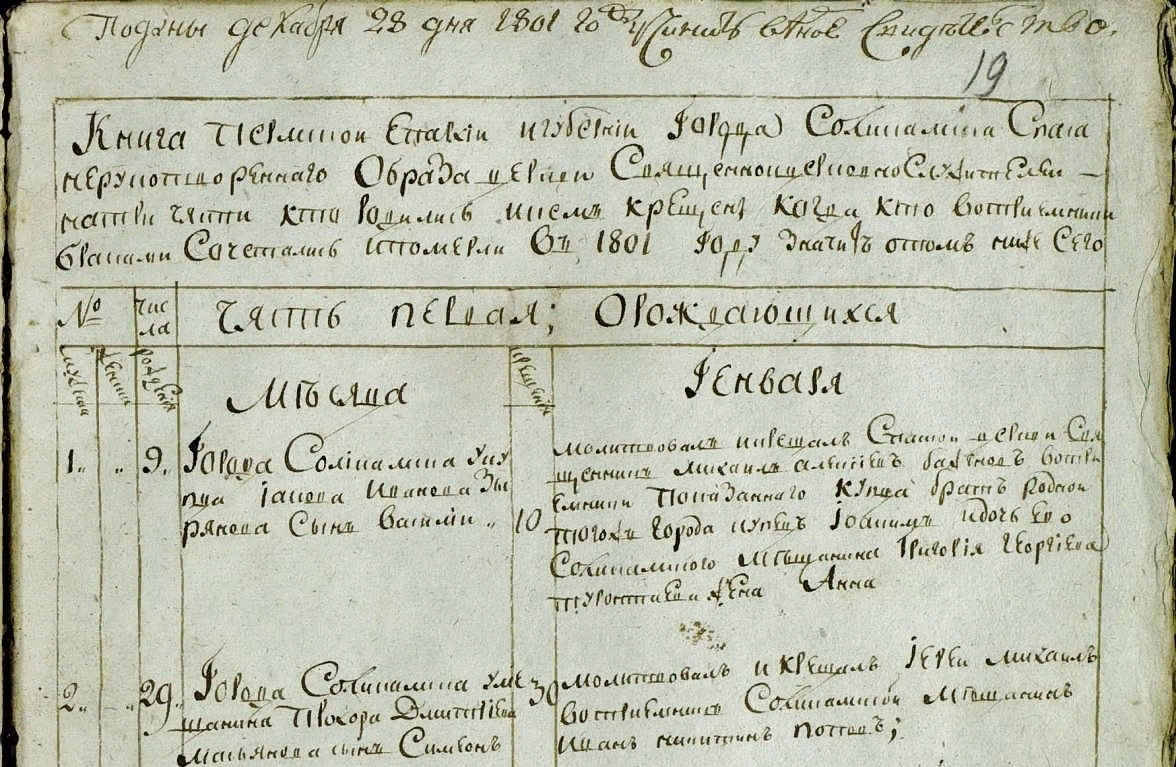 Поданы декабря 28 дня 1801 год учинить свидѣтелство.
19
Книга Пермской Епархїи и губернїи города Соликамска Спаса
нерукотвореннаго Образа церкви Священноцерковнослужителей
на три части кто родились и кемъ крещены когда кто восприемники
браками Сочетались и померли Въ 1801 году значитъ о томъ ниже Сего
№ Числа Часть первая; О рождающихся
мужска женска рожденїя Мѣсяца крещенїя Генваря
1. „ 9. Города Соликамска у ку
пца Іакова Иванова Зы
рянова сынъ Василїи „ 10
молитвовалъ и крещалъ Спаской церкви Свя
щенникъ Михаилъ Алеѯѣевъ воспри
емники показаннаго купца братъ родной
того же города купецъ Іоакимъ и дочь ево
Соликамского мѣщанина Григорїя Георгїева
жена Анна
2. „ 29. Города Соликамска у мѣ
щанина Прохора Дмитрїева
сынъ Симеонъ 30
молитвовалъ и крещалъ Іереи Михаилъ
восприемникъ Соликамской мѣщанинъ
Иванъ никитинъ поповъ;